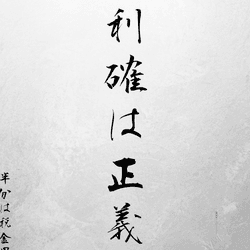 利確は正義
半分は税金用